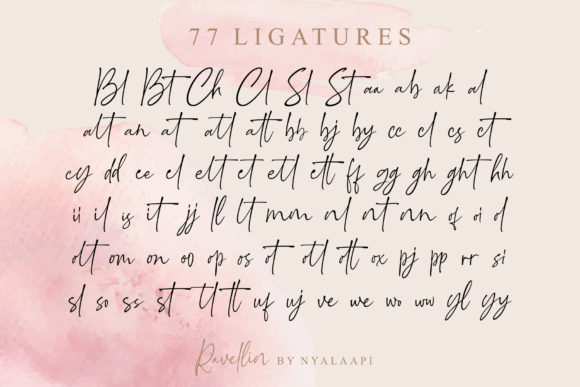 77 LIGATURES
Bl Bt Ch Cl Sl St aa ab ak al
alt an at atl att bb bj by cc cl cs ct
cy dd ee el elt et etl ett ff gg gh ght hh
ii il is it jj ll lt mm nl nt nn of oi ol
olt om on oo op os ot otl ott ox pj pp rr si
sl so ss st tl tt uf uj ve we wo ww yl yy
Ravellin BY NYALAAPI